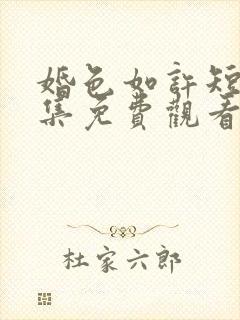 婚色如許短
集免費觀看
杜家六郎